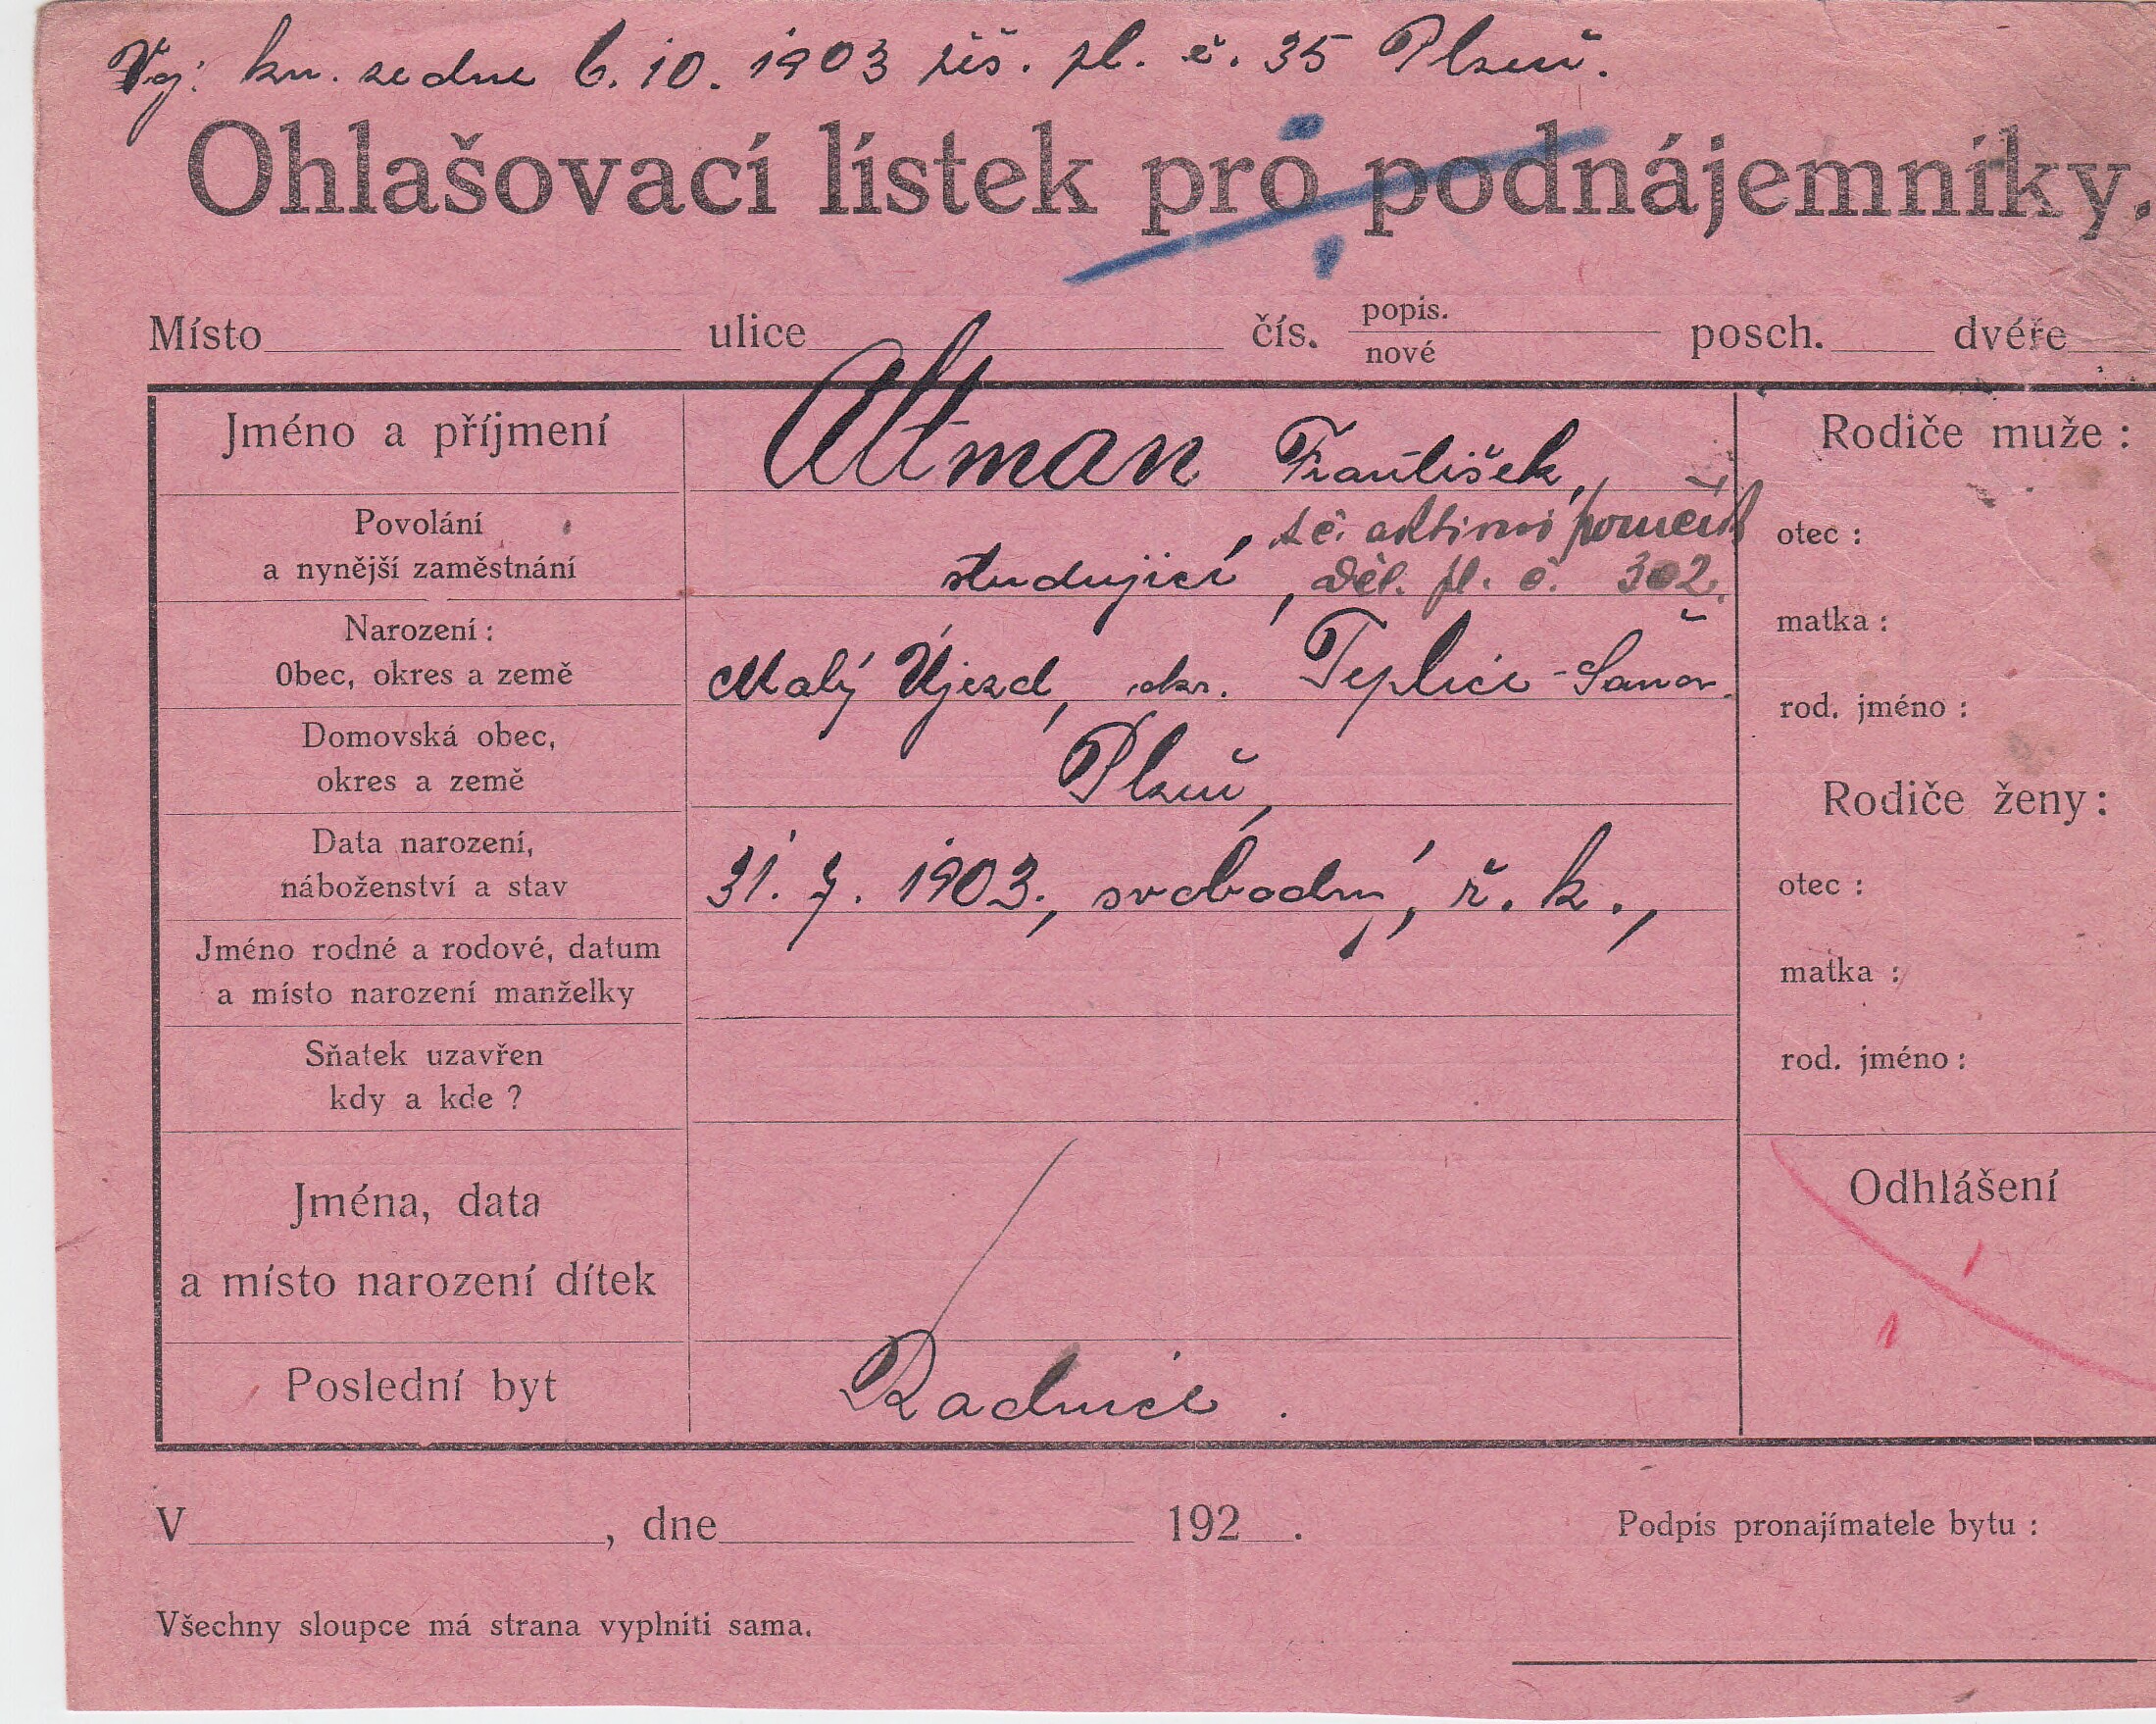 Voj. kn. ze dne 6. 10. 1903 pěš. pl. č. 35 Plzeň.
Ohlašovací lístek pro podnájemníky.
Místo ulice čís. popis. nové posch. dvéře
Jméno a příjmení Altman František,
Rodiče muže :
Povolání
a nynější zaměstnání
t. č. aktivní poručík
studující, děl. pl. č. 302.
otec :
matka :
rod. jméno :
Narození :
Obec, okres a země
Malý Újezd, okr. Teplice-Šanov.
Domovská obec,
okres a země
Plzeň,
Rodiče ženy :
otec :
matka :
rod. jméno :
Data narození,
náboženství a stav
31. 7. 1903., svobodný, ř. k.,
Jméno rodné a rodové, datum
a místo narození manželky
Sňatek uzavřen
kdy a kde ?
Jména, data
a místo narození dítek
Odhlášení
Poslední byt Radnice.
V , dne 192 .
Podpis pronajímatele bytu :
Všechny sloupce má strana vyplniti sama.